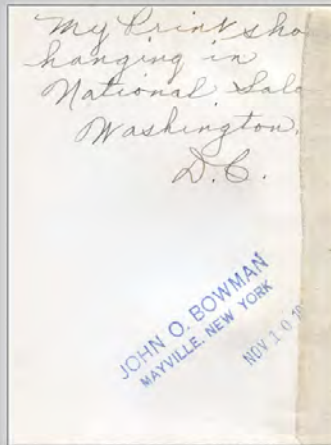 My Print sho
hanging in
National Salo
Washington,
D.C.
JOHN O. BOWMAN
MAYVILLE, NEW YORK
NOV 10 19